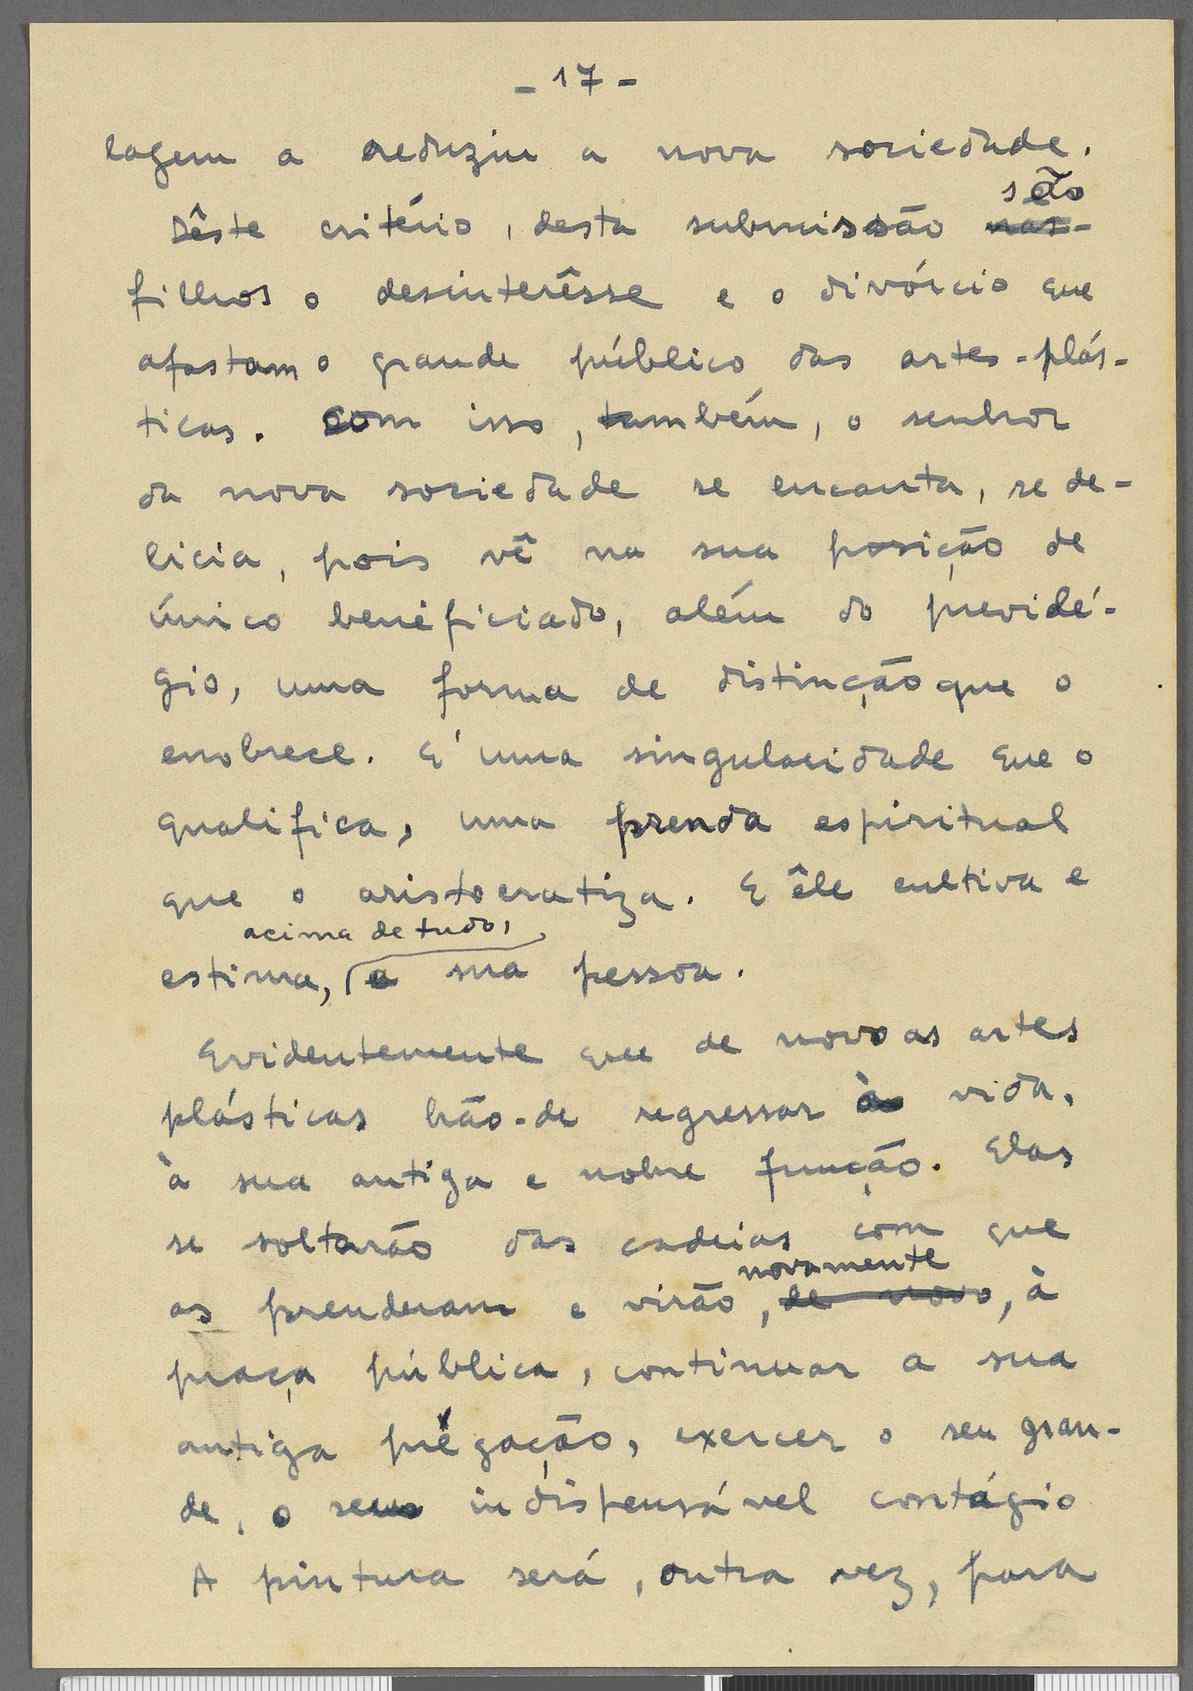 - 17 -
lagem a reduziu a nova sociedade.
são
Dêste critério, desta submissão nas-
filhos o desinterêsse e o divórcio que
afastam o grande público das artes-plás-
ticas. Com isso, também, o senhor
da nova sociedade se encanta, se de-
licia, pois vê na sua posição de
único beneficiado, além do previlé-
gio, uma forma de distinção que o
enobrece. E' uma singularidade que o
qualifica, uma prenda espiritual
que o aristocratiza. E êle cultiva e
acima de tudo,
estima, a sua pessoa.
Evidentemente que de novo as artes
plásticas hão-de regressar à vida,
à sua antiga e nobre função. Elas
se soltarão das cadeias com que
novamente
as prenderam e virão, de novo, à
praça pública, continuar a sua
antiga prègação, exercer o seu gran-
de, o seu indispensável contágio
A pintura será, outra vez, para